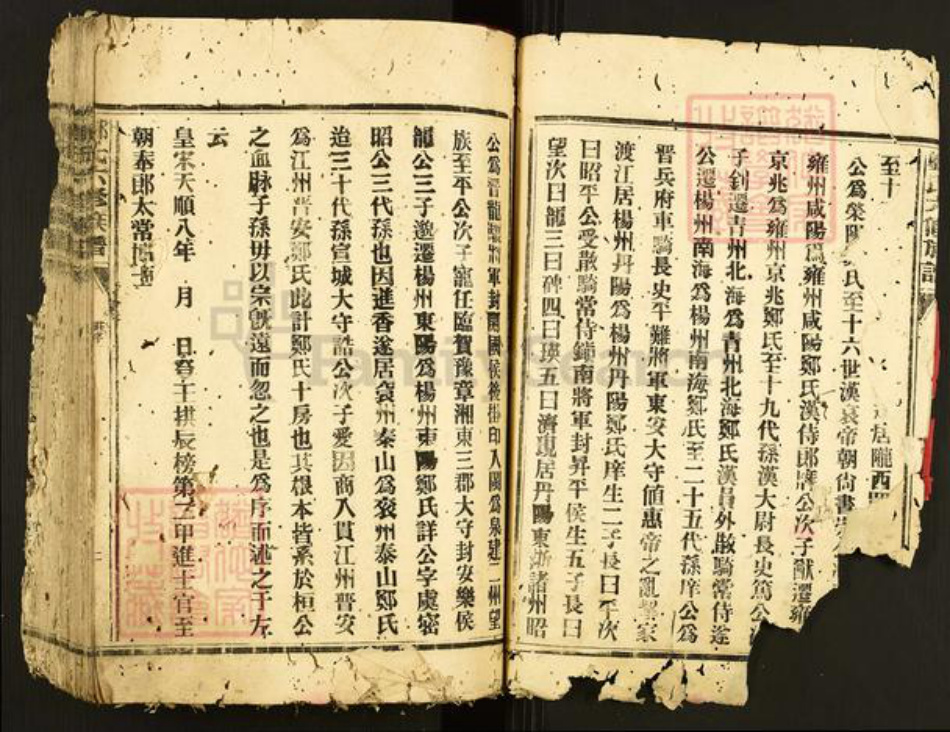 至十 居隴西
公爲滎陽 氏至十六世漢哀帝朝尙書
雍州咸陽爲雍州咸陽鄭氏漢侍郎 公次子猷遷雍
京兆爲雍州京兆鄭氏至十九代孫漢大尉長史篤公
子釗遷青州北海爲青州北海鄭氏漢員外散騎常侍遂
公遷楊州南海爲楊州南海鄭氏至二十五代孫庠公爲
晉兵府車騎長史平難將軍東安大守値惠帝之亂挈家
渡江居楊州丹陽爲楊州丹陽鄭氏庠生二子長曰平次
曰昭平公受散騎常侍鎮南將軍封昇平侯生五子長曰
望次曰龍三曰碑四曰瑛五曰濟現居丹陽東浙諸州昭
公爲晉龍驤將軍封開國侯後掛印入閩爲泉建二州望
族至平公次子寵任臨賀豫章湘東三郡大守封安樂侯
龍公三子邀遷楊州東陽爲楊州東陽鄭氏詳公字處密
昭公三代孫也因進香遂居袞州泰山爲袞州泰山鄭氏
迨三十代孫宣城大守誥公次子愛因商入貫江州晉安
爲江州晉安鄭氏此計鄭氏十房也其根本皆系於桓公
之血脉子孫毋以宗旣遠而忽之也是爲序而述之于左
云
皇宋天順八年 月 日登王拱辰榜第二甲進士官至
朝奉郎太常博士